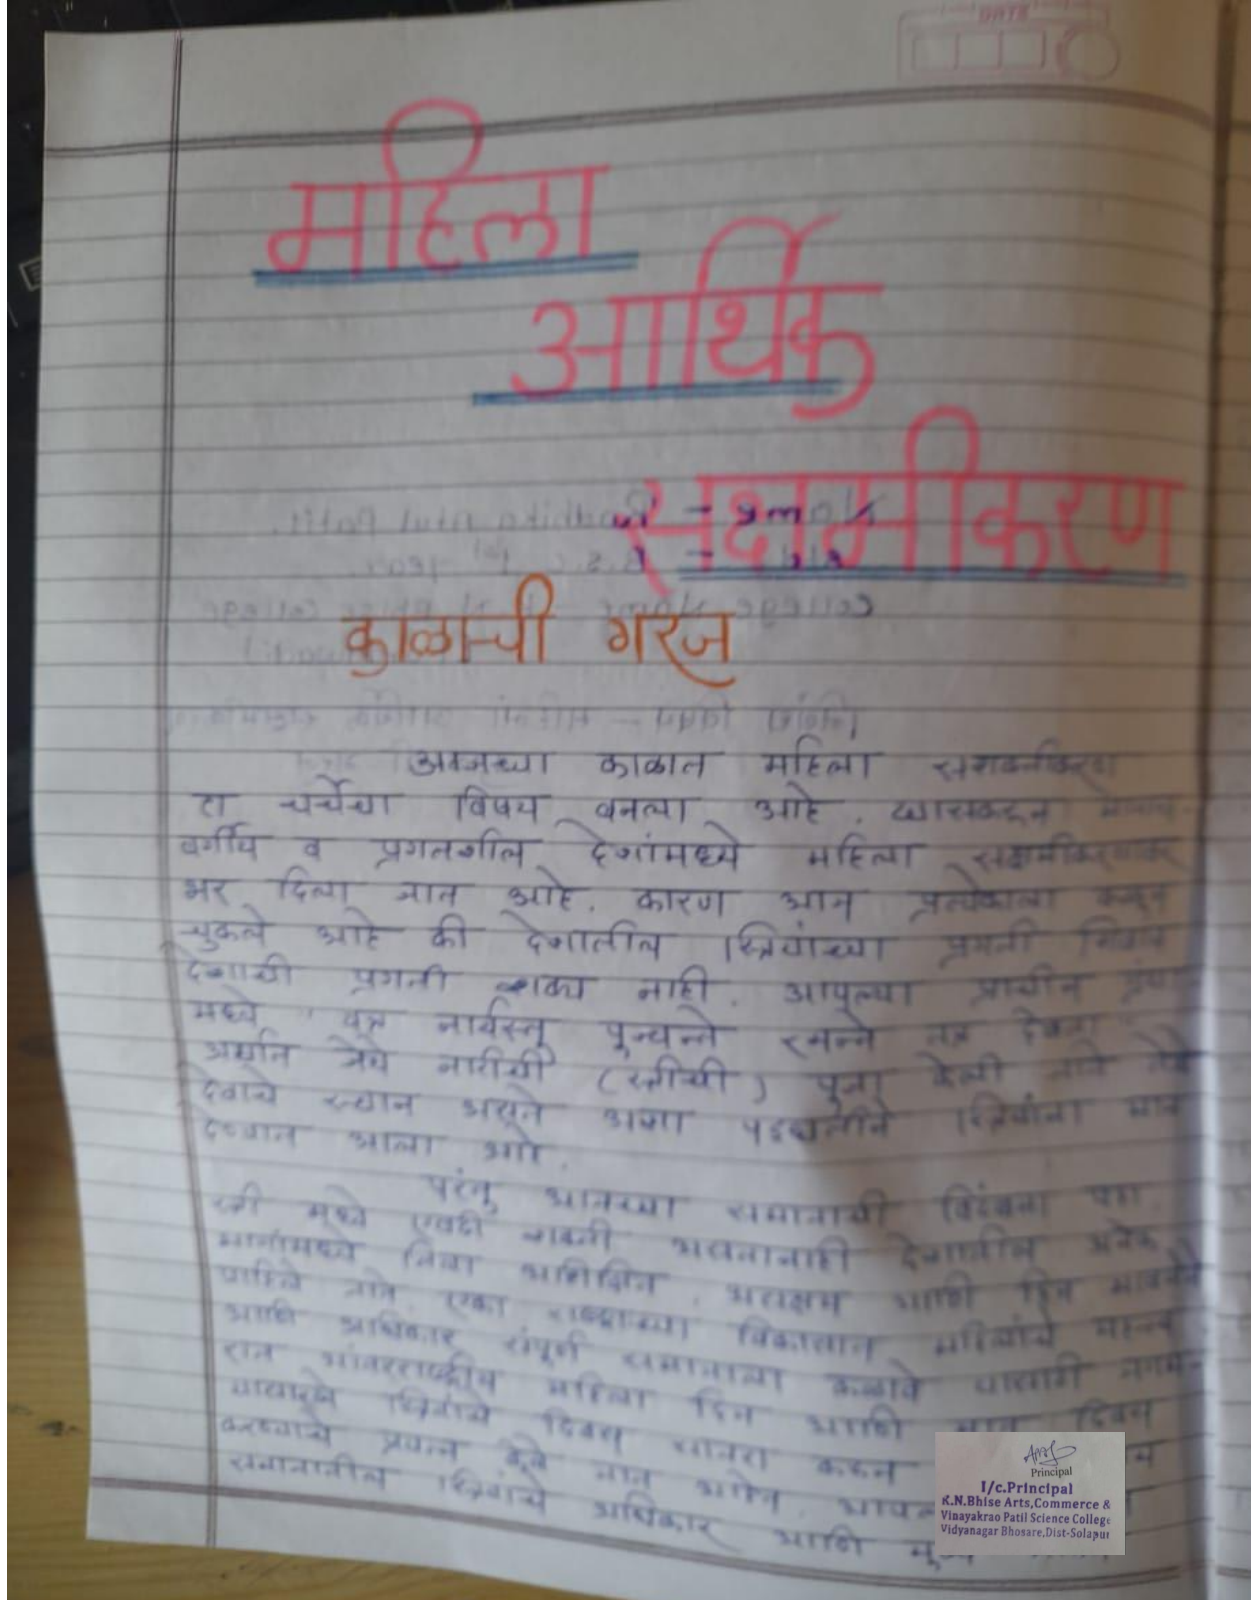 DATE
महिला
आर्थिक
सक्षमीकरण
काळाची गरज
आजच्या काळात महिला
हा चर्चेचा विषय बनला आहे. खासकरून
वर्गीय व प्रगतशील देशांमध्ये महिला
भर दिला जात आहे. कारण आज प्रत्येकाला कळून
चुकले आहे की देशातील स्त्रियांच्या प्रगती शिवाय
देशाची प्रगती शक्य नाही. आपल्या प्राचीन
मध्ये "यत्र नार्यस्तु पूज्यन्ते रमन्ते तत्र देवता"
अर्थात जेथे नारीची (स्त्रीची) पूजा केली जाते तेथे
देवाचे स्थान असते अशा पद्धतीने स्त्रियांना मान
देण्यात आला आहे.
परंतु आजच्या समाजाची विडंबना पहा.
स्त्री मध्ये एवढी शक्ती असतानाही देशातील अनेक
भागांमध्ये तिला अशिक्षित, आणि हिन भावनेने
पाहिले जाते. एका राष्ट्राच्या विकासात महिलांचे महत्व
आणि अधिकार संपूर्ण समाजाला कळावे यासाठी
आंतरराष्ट्रीय महिला दिन आणि मातृ दिवस
यासारखे स्त्रियांचे दिवस साजरा करून
करण्याचे प्रयत्न केले जात आहेत.
समाजातील स्त्रियांचे अधिकार आणि मूल्य
Principal
I/c.Principal
K.N.Bhise Arts,Commerce &
Vinayakrao Patil Science College
Vidyanagar Bhosare,Dist-Solapur